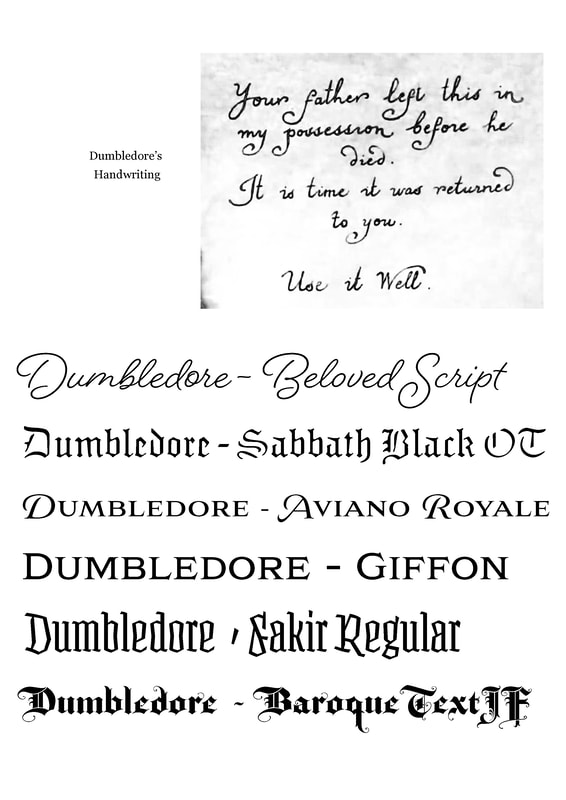 Dumbledore's
Handwriting
Your father left this in
my possession before he
died.
It is time it was returned
to you.
Use it Well.
Dumbledore - Beloved Script
Dumbledore - Sabbath Black OT
Dumbledore - Aviano Royale
Dumbledore - Giffon
Dumbledore , Fakir Regular
Dumbledore - Baroque Text JF